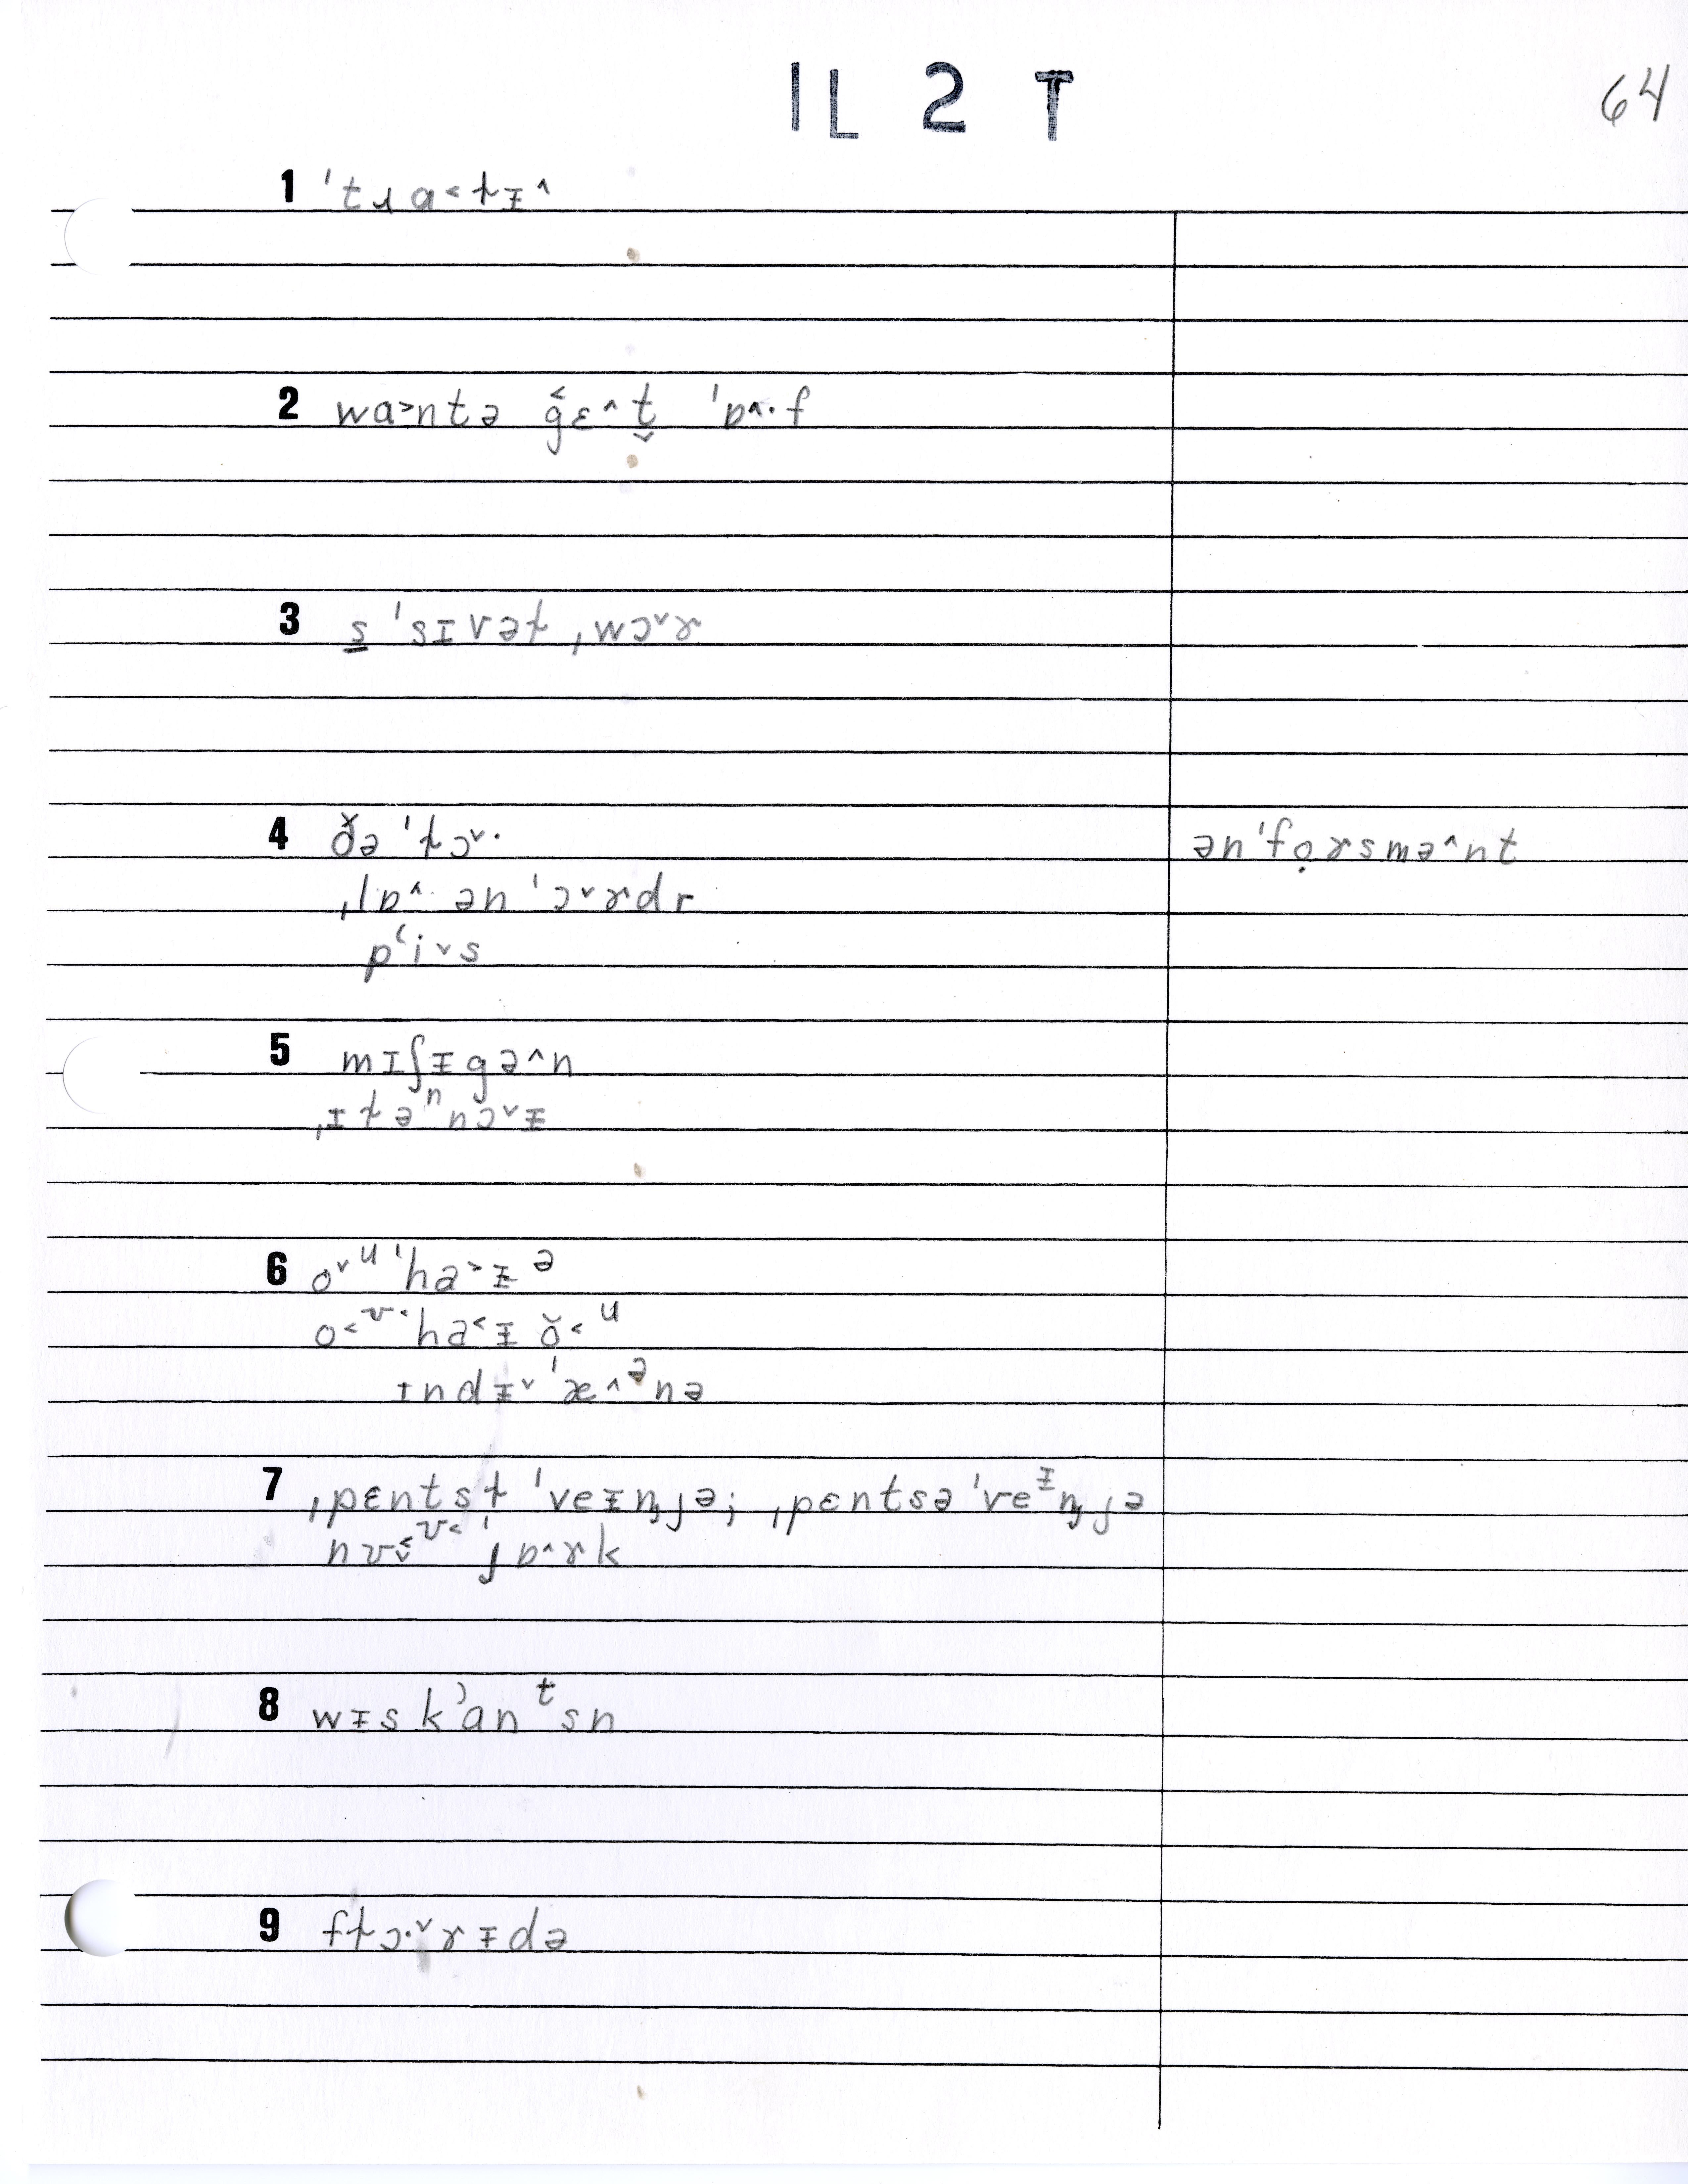 IL 2 T
64
1 ˈtɹɑ˂ɫɪ̵˄
2 wa˃ntə g̑ɛ˄t̬ ˈɒ˄·f
3 s̲ ˈsɪvəɫ ˌwɔ˅ɤ
4 ð̌ə ˈɫɔ˅· ənˈfọɤsmə˄nt
ˌlɒ˄· ən ˈɔ˅ɤdr
pʻi˅s
5 mɪʃɪ̵gə˄n
ˌɪɫəⁿnɔ˅ɪ̵
6 o˅ᵘˈha˃ɪ̵ᵊ
o˂ᶹ·ha˂ɪ̵ ŏ˂ᵘ
ɪndɪ̵˅ˈæ˄ᵊnə
7 ˌpɛntsɫ ˈveɪ̵nɟə; ˌpɛntsəˈveᶦnɟə
nʊ˂ᶹ˂ ˈɟɒ˄ɤk
8 wɪ̵skʼanᵗsn
9 fɫɔ·˅ɤɪ̵də